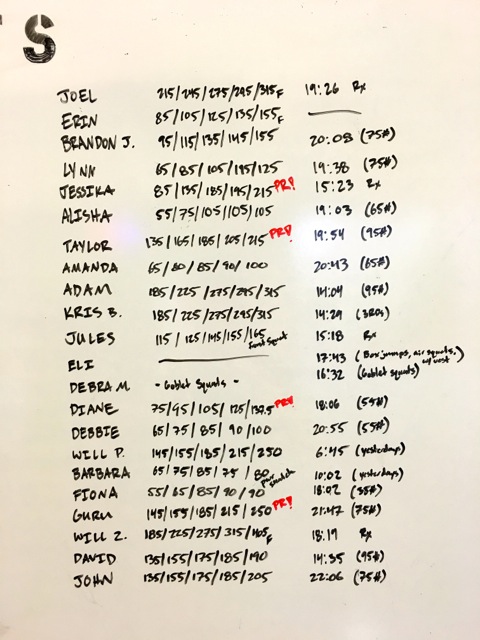 S
JOEL 215/245/275/295/315F 19:26 Rx
ERIN 85/105/125/135/155F ——
BRANDON J. 95/115/135/145/155 20:08 (75#)
LYNN 65/85/105/115/125 19:38 (75#)
JESSIKA 85/135/185/195/215 PR! 15:23 Rx
ALISHA 55/75/105/105/105 19:03 (65#)
TAYLOR 135/165/185/205/215 PR! 19:54 (95#)
AMANDA 65/80/85/90/100 20:43 (65#)
ADAM 185/225/275/295/315 14:04 (95#)
KRIS B. 185/225/275/295/315 14:29 (3RDS)
JULES 115/125/145/155/165 Front Squat 15:18 Rx
ELI —— 17:43 (Box jumps, air squats, w/vest)
DEBRA M - Goblet Squats - 16:32 (Goblet squats)
DIANE 75/95/105/125/137.5 PR! 18:06 (55#)
DEBBIE 65/75/85/90/100 20:55 (55#)
WILL P. 145/155/185/215/250 6:45 (yesterdays)
BARBARA 65/75/85/75/80 pwr snatch 10:02 (yesterdays)
FIONA 55/65/85/90/90 18:02 (55#)
GURU 145/155/185/215/250 PR! 21:47 (75#)
WILL Z. 185/225/275/315/405F 18:19 Rx
DAVID 135/155/175/185/190 14:35 (95#)
JOHN 135/155/175/185/205 22:06 (75#)